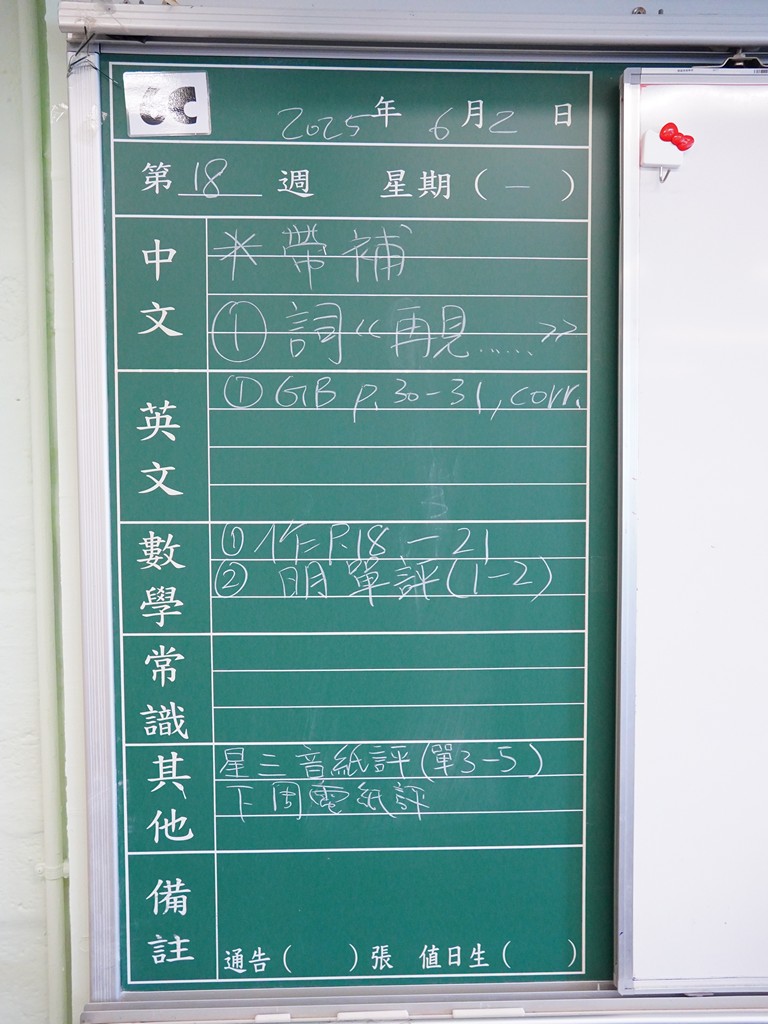 6C
2025年6月2日
第18週 星期（一）
中文
*帶補
①詞《再見……》
英文
①GB p.30-31, corr.
數學
①作P.18-21
②明單評(1-2)
常識
其他
星三音紙評(單3-5)
下周電紙評
備註
通告（ ）張 值日生（ ）